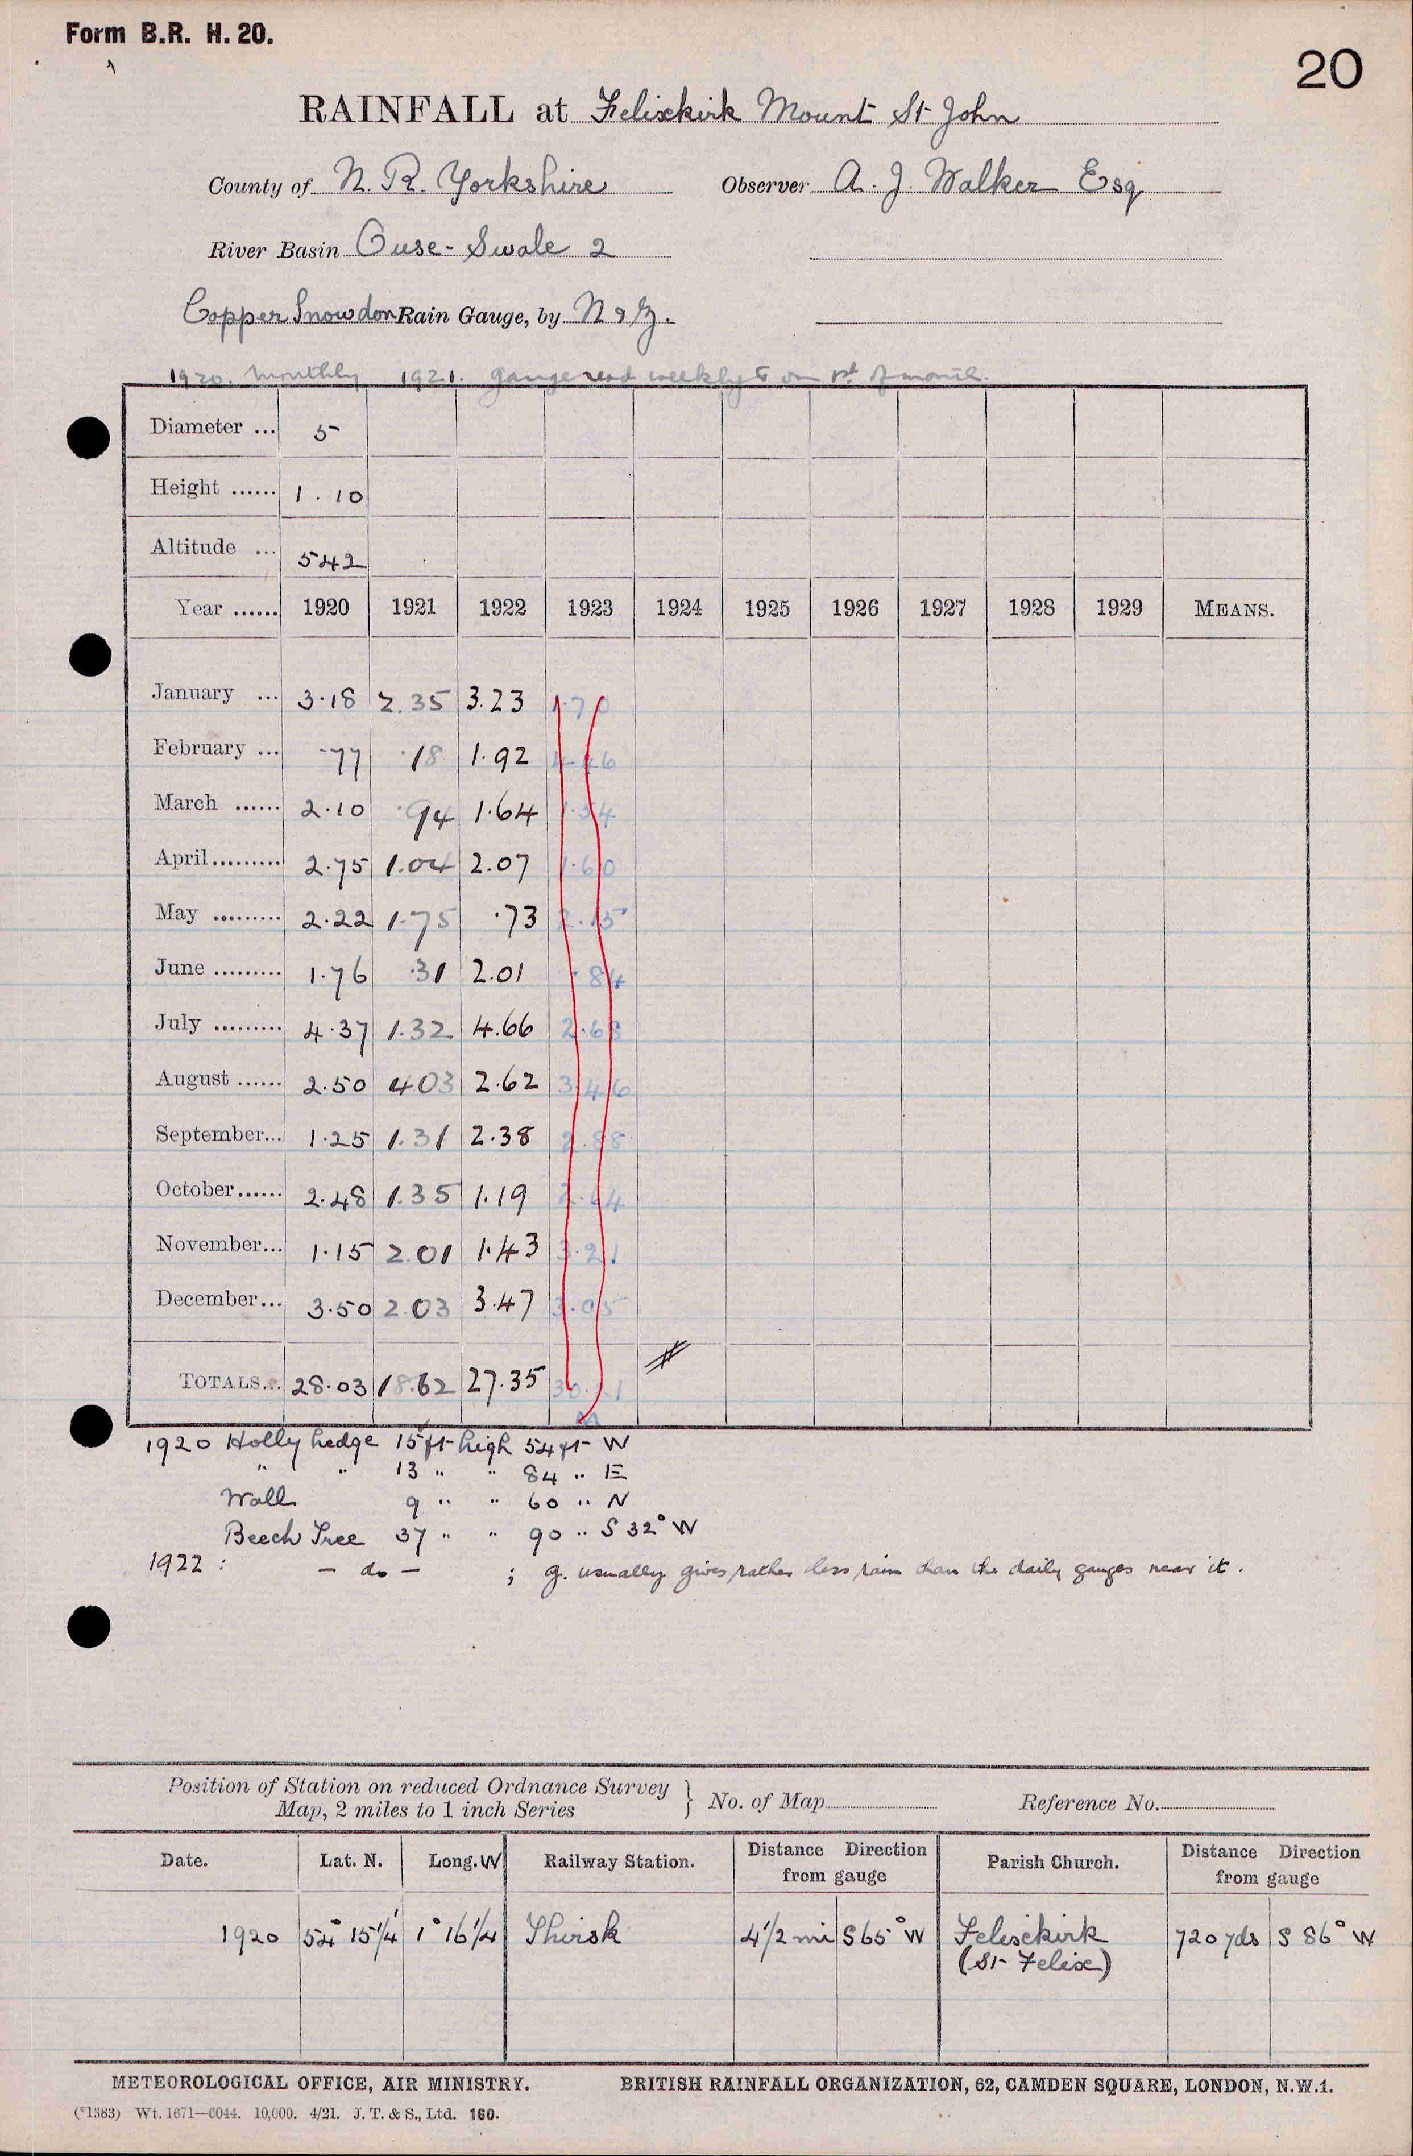 Form B.R. H. 20.
20
RAINFALL at Felixkirk Mount St John
County of N. R. Yorkshire Observer A. J. Walker Esq
River Basin Ouse - Swale 2
Copper Snowdon Rain Gauge, by N & Z.
1920. monthly 1921. gauge read weekly & on 1st of month.
Diameter ... 5
Height ...... 1.10
Altitude ... 542
Year ...... 1920 1921 1922 1923 1924 1925 1926 1927 1928 1929 MEANS.
January ... 3.18 2.35 3.23 1.70
February ... .77 .18 1.92
March ...... 2.10 .94 1.64
April ......... 2.75 1.04 2.07 1.60
May ......... 2.22 1.75 .73 2.15
June ......... 1.76 .31 2.01 .84
July ......... 4.37 1.32 4.66 2.68
August ...... 2.50 4.03 2.62 3.46
September... 1.25 1.31 2.38 2.88
October...... 2.48 1.35 1.19 2.64
November... 1.15 2.01 1.43 3.21
December... 3.50 2.03 3.47 3.05
TOTALS... 28.03 18.62 27.35
1920 Holly hedge 15 ft high 54 ft W
" " 13 " " 84 " E
Wall 9 " " 60 " N
Beech Tree 37 " " 90 " S 32° W
1922 : - do - ; g. usually gives rather less rain than the daily gauges near it.
Position of Station on reduced Ordnance Survey
Map, 2 miles to 1 inch Series } No. of Map Reference No.
Date. Lat. N. Long. W Railway Station. Distance Direction from gauge Parish Church. Distance Direction from gauge
1920 54° 15 1/4' 1° 16 1/4' Thirsk 4 1/2 mi S 65° W Felixkirk 720 yds S 86° W
(St Felix)
METEOROLOGICAL OFFICE, AIR MINISTRY. BRITISH RAINFALL ORGANIZATION, 62, CAMDEN SQUARE, LONDON, N.W.1.
(*1383) Wt. 1671—6044. 10,000. 4/21. J. T. & S., Ltd. 160.